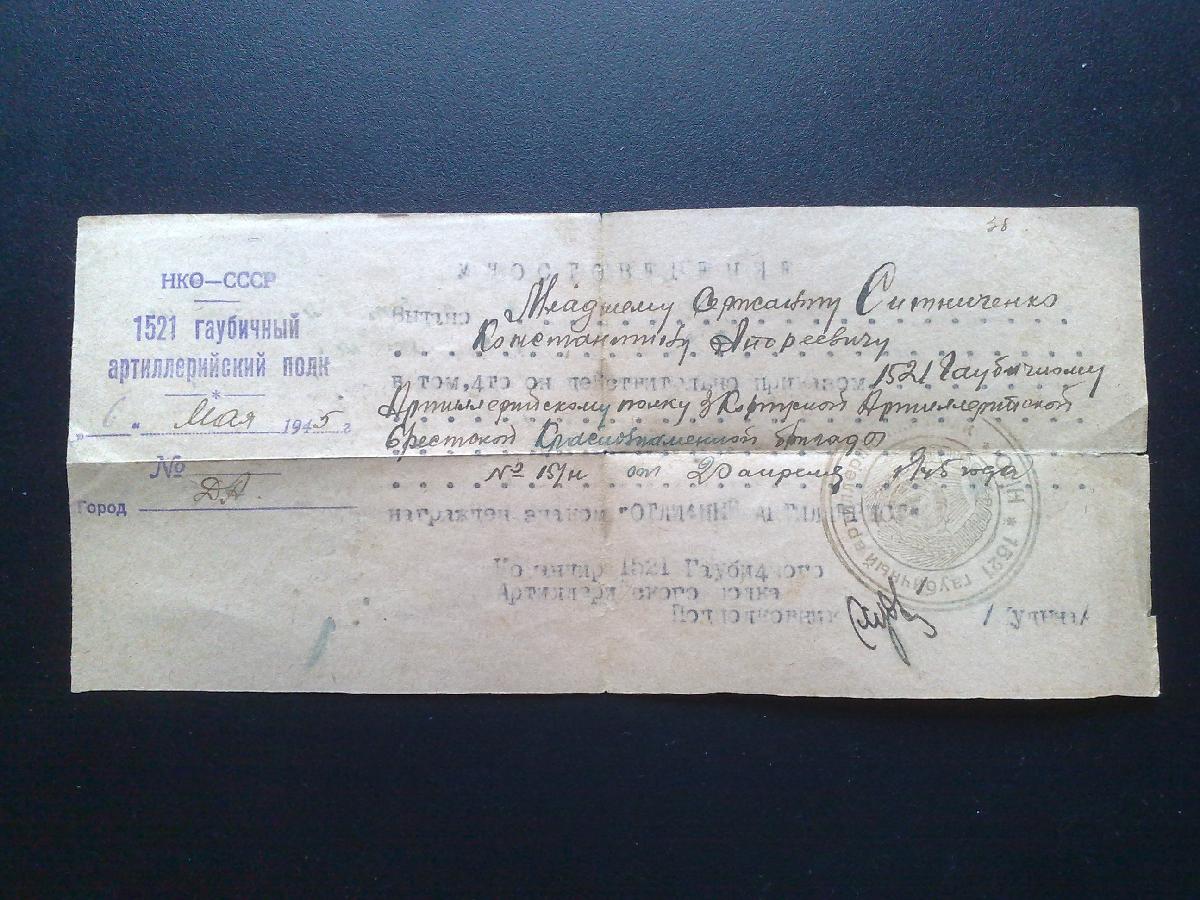 НКО—СССР
1521 гаубичный
артиллерийский полк
*
„6“ Мая 1945 г
№
Д.А.
Город
38
УДОСТОВЕРЕНИЕ
Выдано Младшему Сержанту Ситниченко
Константину Андреевичу
в том, что он действительно приказом 1521 Гаубичному
Артиллерийскому полку 3 Корпусной Артиллерийской
Брестской Краснознаменной бригады
№ 15/н от 20 апреля 1945 года
награжден знаком "ОТЛИЧНЫЙ АРТИЛЛЕРИСТ"
Командир 1521 Гаубичного
Артиллерийского полка
Подполковник
* 1521 гаубичный артиллерийский